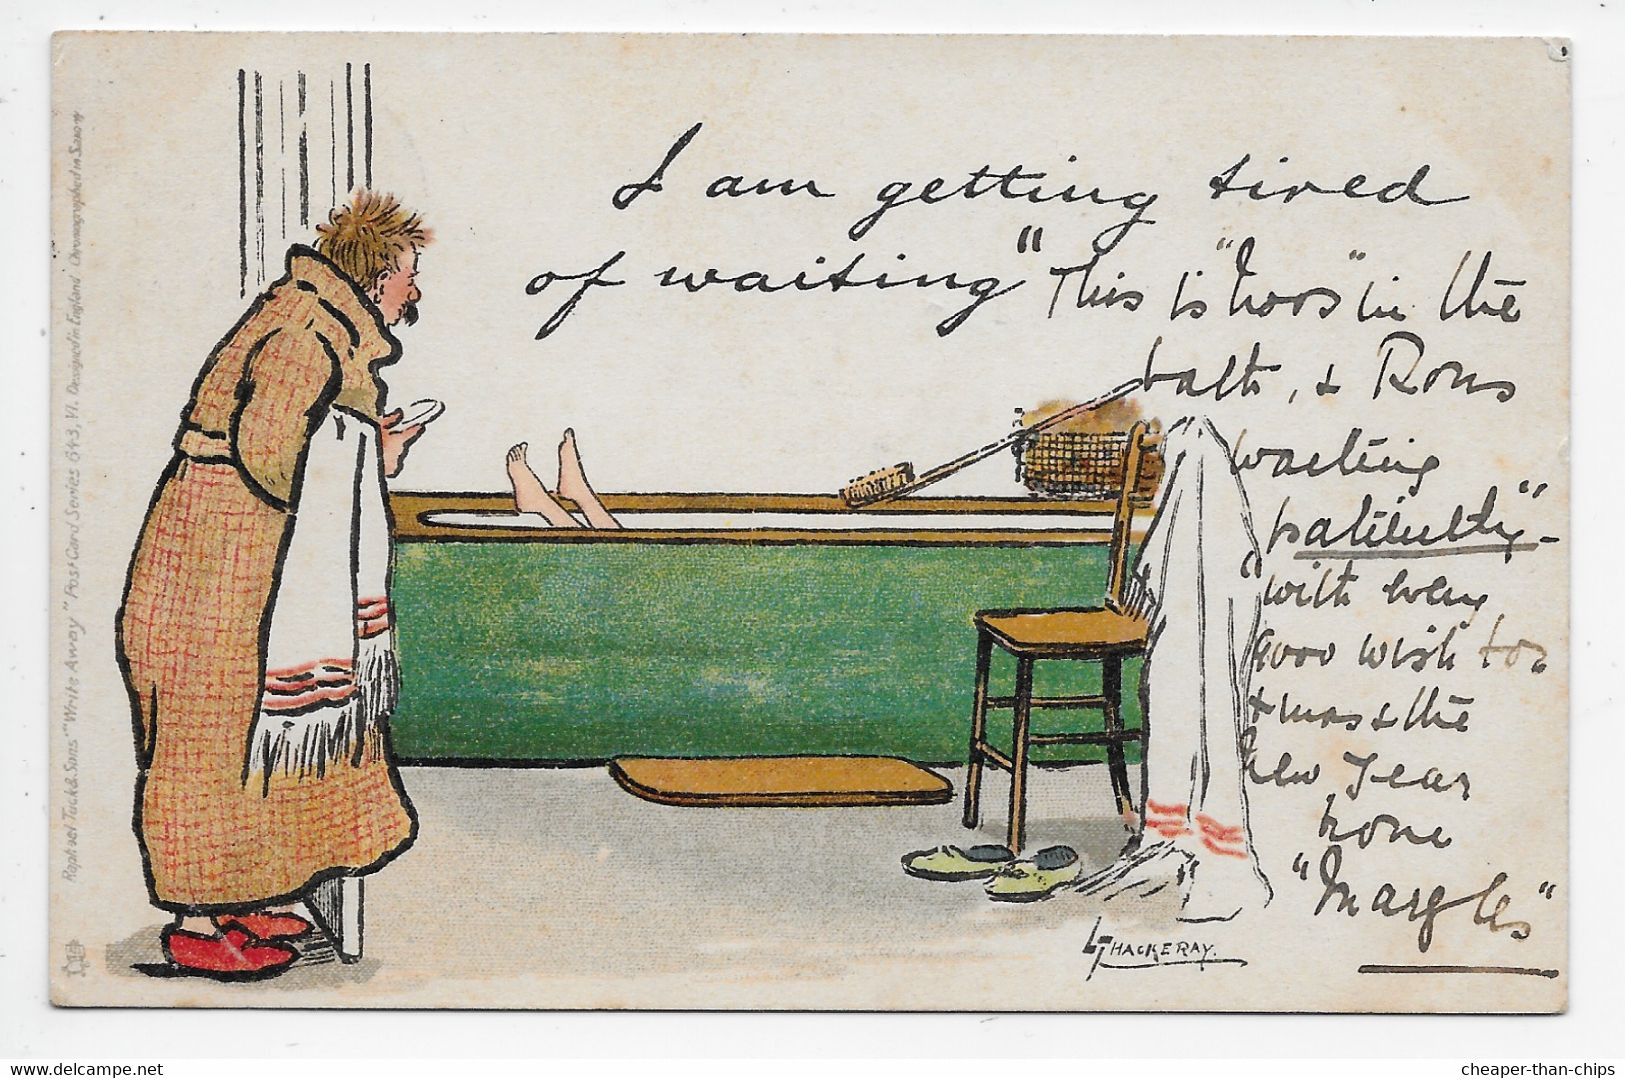 I am getting tired
of waiting" This is "Noos" in the
bath, & Rons
waiting
patiently"-
"with every
good wish for
Xmas & the
New Year
from
"Margles"
L THACKERAY.
Raphael Tuck & Sons' "Write Away" Post Card Series 643, VI. Designed in England Chromographed in Saxony
cheaper-than-chips
www.delcampe.net